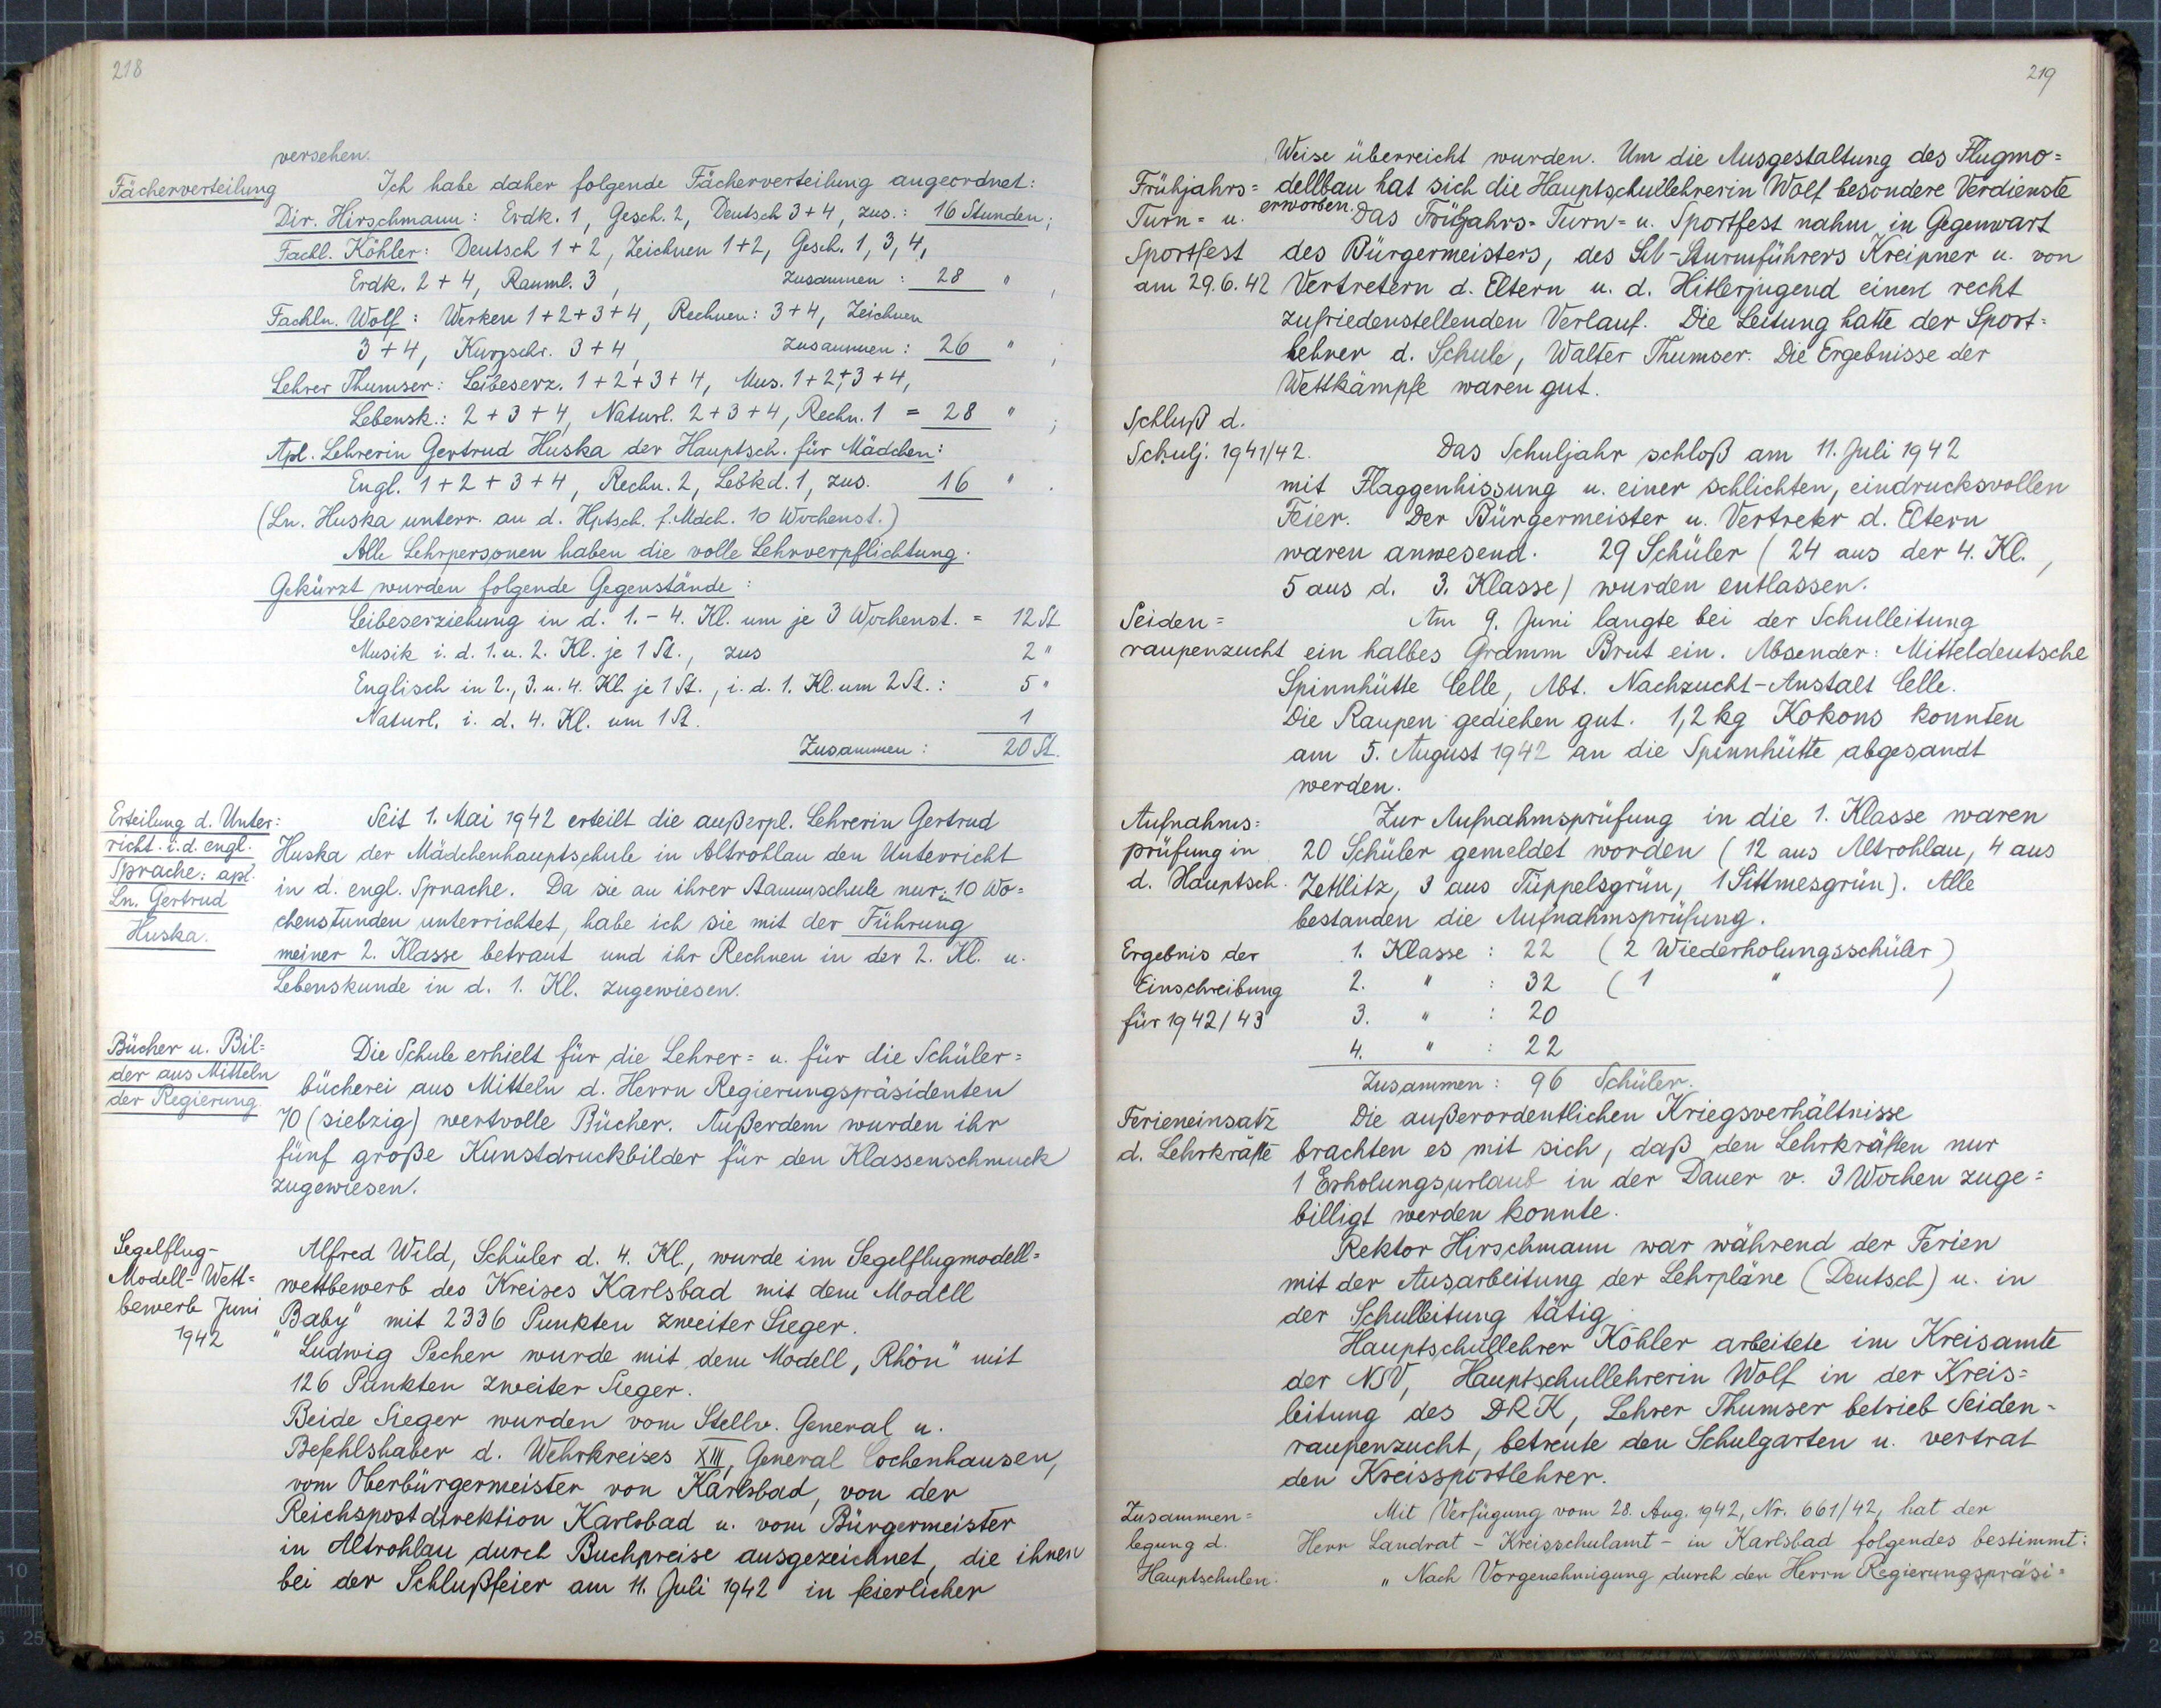 218
versehen.
Fächerverteilung
Ich habe daher folgende Fächerverteilung angeordnet:
Dir. Hirschmann: Erdk. 1, Gesch. 2, Deutsch 3+4, zus.: 16 Stunden;
Fachl. Köhler: Deutsch 1+2, Zeichnen 1+2, Gesch. 1, 3, 4,
Erdk. 2+4, Rauml. 3, Zusammen: 28 " ,
Fachln. Wolf: Werken 1+2+3+4, Rechnen: 3+4, Zeichnen
3+4, Kurzschr. 3+4, Zusammen: 26 " ;
Lehrer Thumser: Leibeserz. 1+2+3+4, Mus. 1+2+3+4,
Lebensk.: 2+3+4, Naturl. 2+3+4, Rechn. 1 = 28 " ;
Apl. Lehrerin Gertrud Huska der Hauptsch. für Mädchen:
Engl. 1+2+3+4, Rechn. 2, Lebkd. 1, zus. 16 " .
(Ln. Huska unterr. an d. Hptsch. f. Mdch. 10 Wochenst.)
Alle Lehrpersonen haben die volle Lehrverpflichtung.
Gekürzt wurden folgende Gegenstände:
Leibeserziehung in d. 1.-4. Kl. um je 3 Wochenst. = 12 St
Musik i. d. 1. u. 2. Kl. je 1 St., zus 2 "
Englisch in 2., 3. u. 4. Kl. je 1 St., i. d. 1. Kl. um 2 St.: 5 "
Naturl. i. d. 4. Kl. um 1 St. 1
Zusammen: 20 St.
Erteilung d. Unter=
richt. i. d. engl.
Sprache: apl.
Ln. Gertrud
Huska.
Seit 1. Mai 1942 erteilt die außerpl. Lehrerin Gertrud
Huska der Mädchenhauptschule in Altrohlau den Unterricht
in d. engl. Sprache. Da sie an ihrer Stammschule nur in 10 Wo=
chenstunden unterrichtet, habe ich sie mit der Führung
meiner 2. Klasse betraut und ihr Rechnen in der 2. Kl. u.
Lebenskunde in d. 1. Kl. zugewiesen.
Bücher u. Bil=
der aus Mitteln
der Regierung.
Die Schule erhielt für die Lehrer= u. für die Schüler=
bücherei aus Mitteln d. Herrn Regierungspräsidenten
70 (siebzig) wertvolle Bücher. Außerdem wurden ihr
fünf große Kunstdruckbilder für den Klassenschmuck
zugewiesen.
Segelflug-
Modell-Wett=
bewerb Juni
1942
Alfred Wild, Schüler d. 4. Kl., wurde im Segelflugmodell=
wettbewerb des Kreises Karlsbad mit dem Modell
„Baby" mit 2336 Punkten zweiter Sieger.
Ludwig Pecher wurde mit dem Modell „Rhön" mit
126 Punkten zweiter Sieger.
Beide Sieger wurden vom Stellv. General u.
Befehlshaber d. Wehrkreises XIII, General Cochenhausen,
vom Oberbürgermeister von Karlsbad, von der
Reichspostdirektion Karlsbad u. vom Bürgermeister
in Altrohlau durch Buchpreise ausgezeichnet, die ihnen
bei der Schlußfeier am 11. Juli 1942 in feierlicher
219
Weise überreicht wurden. Um die Ausgestaltung des Flugmo=
dellbau hat sich die Hauptschullehrerin Wolf besondere Verdienste
erworben.
Frühjahrs=
Turn= u.
Sportfest
am 29.6.42
Das Frühjahrs-Turn= u. Sportfest nahm in Gegenwart
des Bürgermeisters, des SA-Sturmführers Kreipner u. von
Vertretern d. Eltern u. d. Hitlerjugend einen recht
zufriedenstellenden Verlauf. Die Leitung hatte der Sport=
lehrer d. Schule, Walter Thumser. Die Ergebnisse der
Wettkämpfe waren gut.
Schluß d.
Schulj. 1941/42.
Das Schuljahr schloß am 11. Juli 1942
mit Flaggenhissung u. einer schlichten, eindrucksvollen
Feier. Der Bürgermeister u. Vertreter d. Eltern
waren anwesend. 29 Schüler (24 aus der 4. Kl.,
5 aus d. 3. Klasse) wurden entlassen.
Seiden=
raupenzucht
Am 9. Juni langte bei der Schulleitung
ein halbes Gramm Brut ein. Absender: Mitteldeutsche
Spinnhütte Celle, Abt. Nachzucht-Anstalt Celle.
Die Raupen gediehen gut. 1,2 kg Kokons konnten
am 5. August 1942 an die Spinnhütte abgesandt
werden.
Aufnahms=
prüfung in
d. Hauptsch.
Zur Aufnahmsprüfung in die 1. Klasse waren
20 Schüler gemeldet worden (12 aus Altrohlau, 4 aus
Zettlitz, 3 aus Tüppelsgrün, 1 Sittmesgrün). Alle
bestanden die Aufnahmsprüfung.
Ergebnis der
Einschreibung
für 1942/43
1. Klasse: 22 (2 Wiederholungsschüler)
2. " : 32 (1 " )
3. " : 20
4. " : 22
Zusammen: 96 Schüler.
Ferieneinsatz
d. Lehrkräfte
Die außerordentlichen Kriegsverhältnisse
brachten es mit sich, daß den Lehrkräften nur
1 Erholungsurlaub in der Dauer v. 3 Wochen zuge=
billigt werden konnte.
Rektor Hirschmann war während der Ferien
mit der Ausarbeitung der Lehrpläne (Deutsch) u. in
der Schulleitung tätig.
Hauptschullehrer Köhler arbeitete im Kreisamte
der NSV, Hauptschullehrerin Wolf in der Kreis=
leitung des DRK, Lehrer Thumser betrieb Seiden-
raupenzucht, betreute den Schulgarten u. vertrat
den Kreissportlehrer.
Zusammen=
legung d.
Hauptschulen.
Mit Verfügung vom 28. Aug. 1942, Nr. 661/42, hat der
Herr Landrat - Kreisschulamt - in Karlsbad folgendes bestimmt:
„Nach Vorgenehmigung durch den Herrn Regierungspräsi=